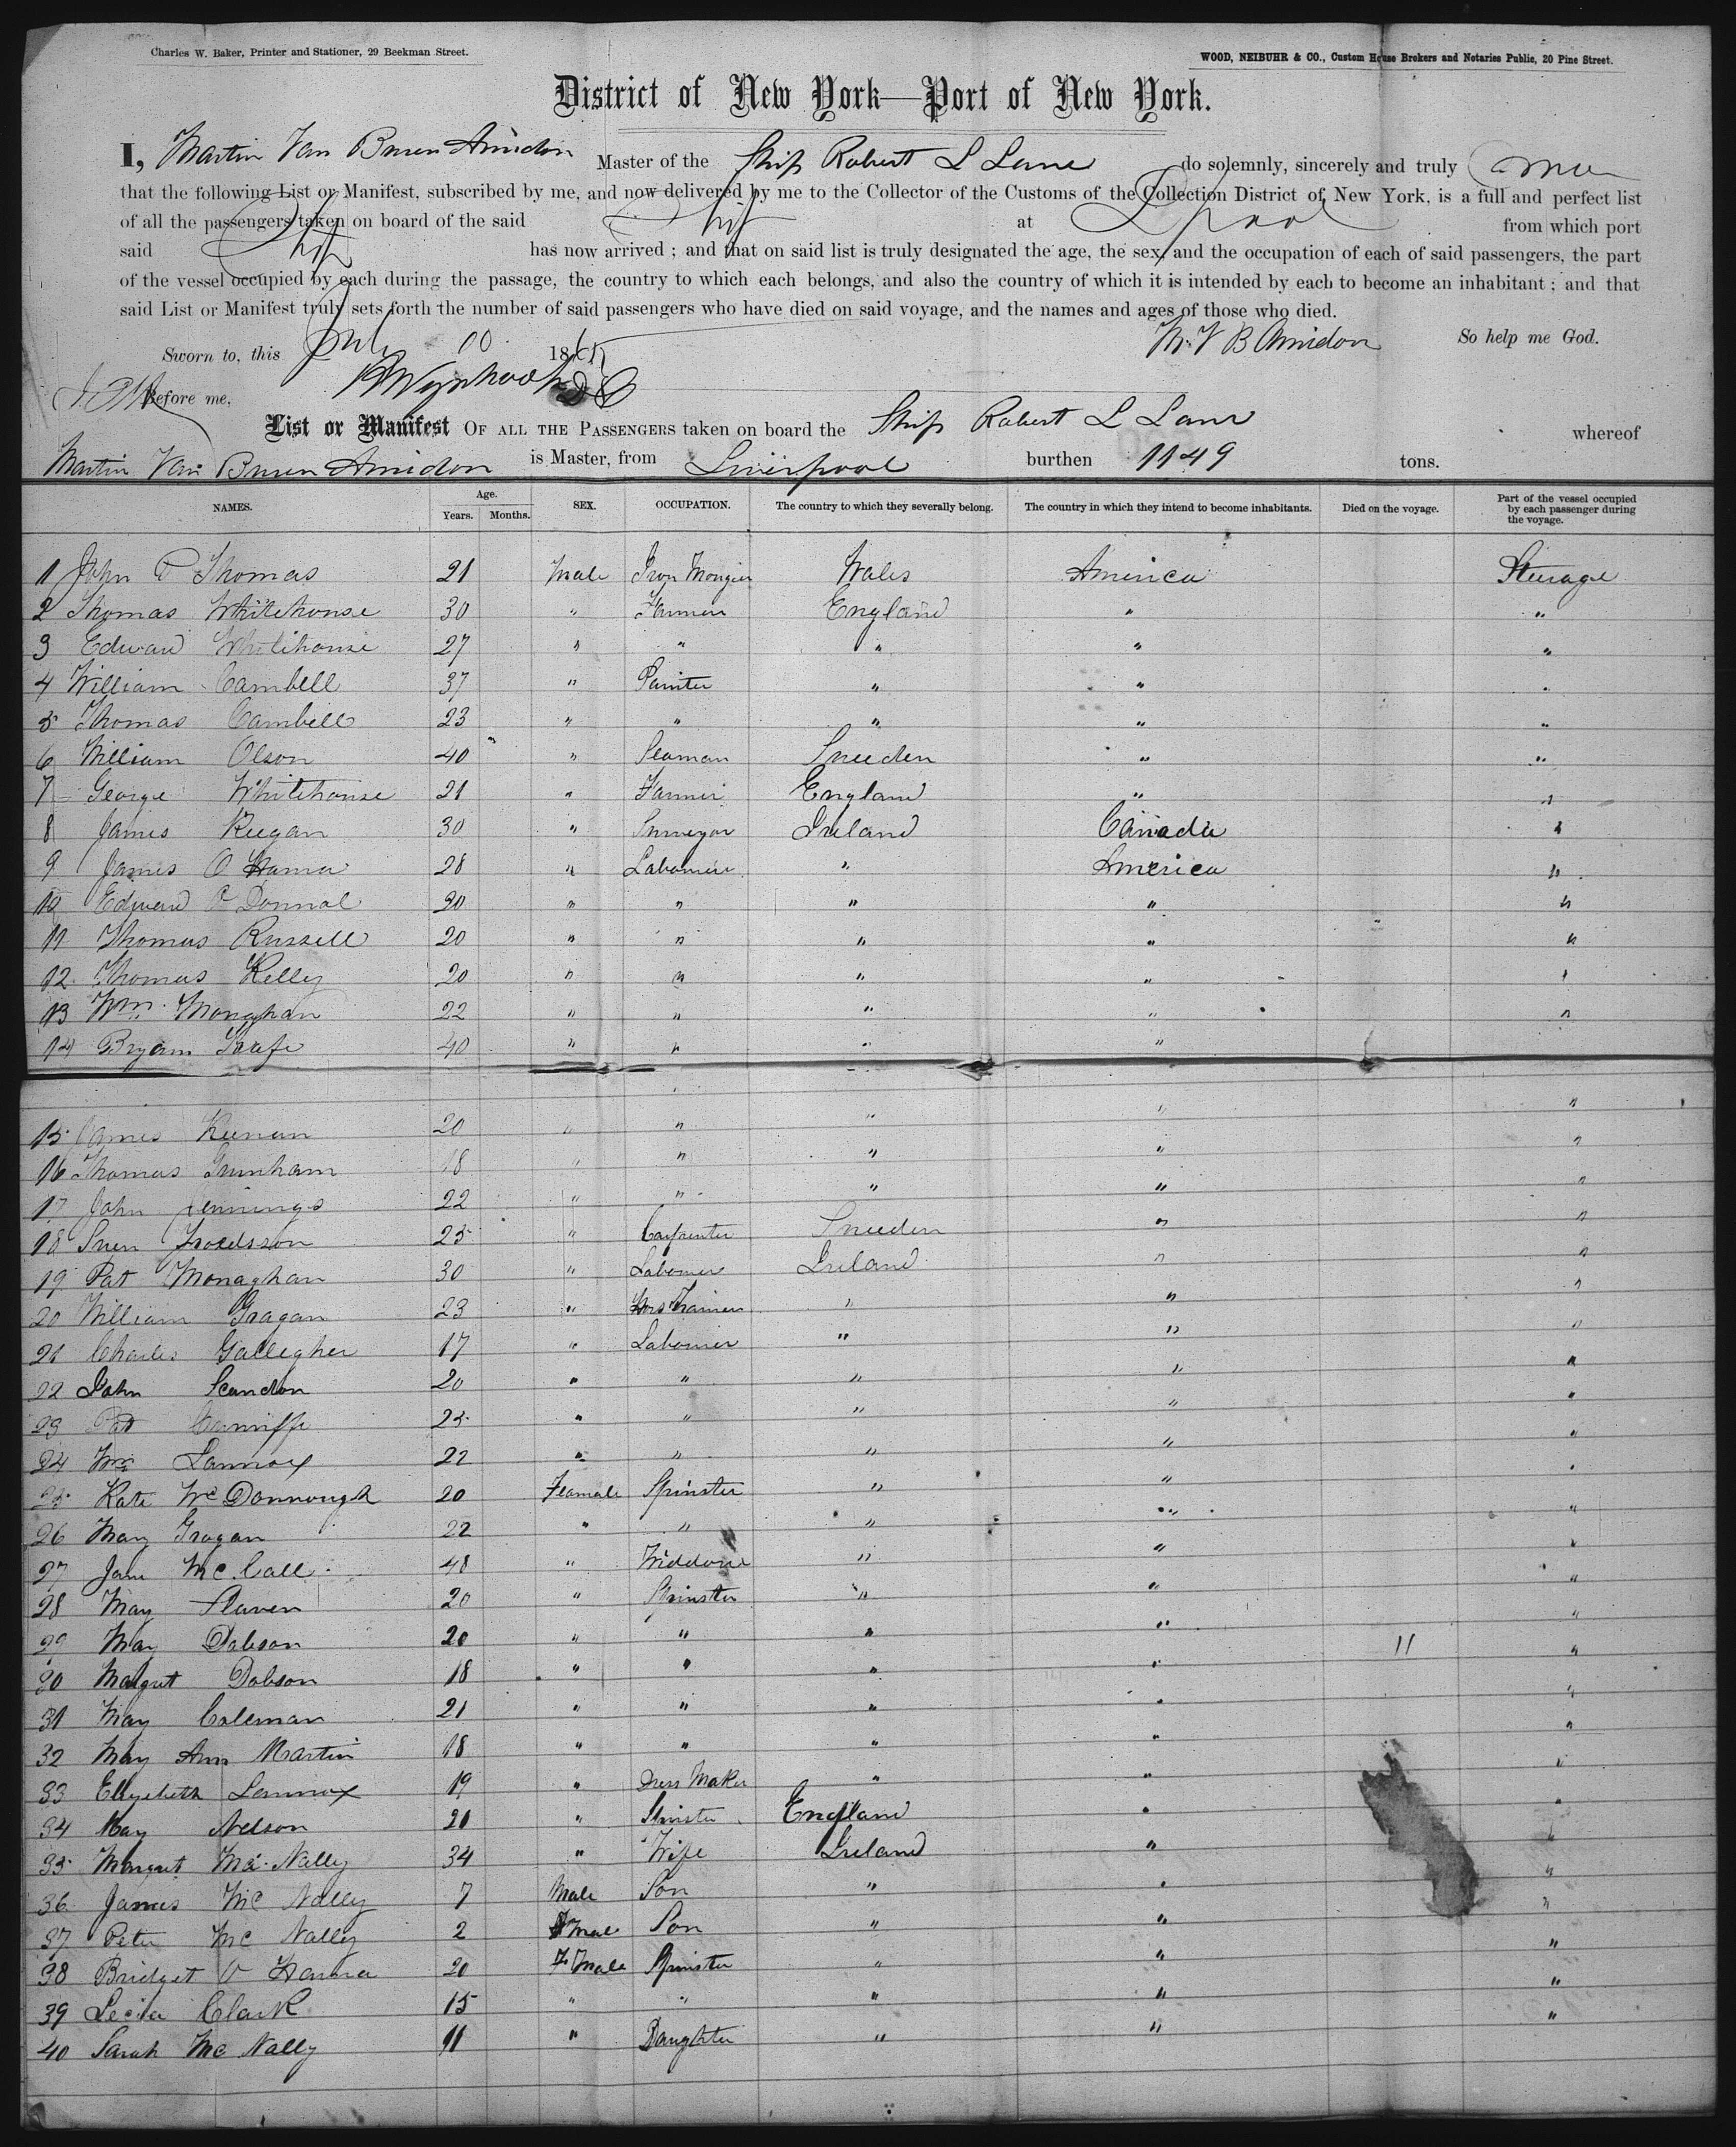 Charles W. Baker, Printer and Stationer, 29 Beekman Street.
WOOD, NEIBUHR & CO., Custom House Brokers and Notaries Public, 20 Pine Street.
District of New York—Port of New York.
I, Martin Van Buren Amidon Master of the Ship Robert L Lane do solemnly, sincerely and truly
that the following List or Manifest, subscribed by me, and now delivered by me to the Collector of the Customs of the Collection District of New York, is a full and perfect list
of all the passengers taken on board of the said Ship at Lpool from which port
said Ship has now arrived ; and that on said list is truly designated the age, the sex, and the occupation of each of said passengers, the part
of the vessel occupied by each during the passage, the country to which each belongs, and also the country of which it is intended by each to become an inhabitant ; and that
said List or Manifest truly sets forth the number of said passengers who have died on said voyage, and the names and ages of those who died.
Sworn to, this July 10 1865 M. V B Amidon So help me God.
Before me,
List or Manifest OF ALL THE PASSENGERS taken on board the Ship Robert L Lane whereof
Martin Van Buren Amidon is Master, from Liverpool burthen 1149 tons.
NAMES. Age. Years. Months. SEX. OCCUPATION. The country to which they severally belong. The country in which they intend to become inhabitants. Died on the voyage. Part of the vessel occupied by each passenger during the voyage.
1 John P Thomas 21 Male Iron Monger Wales America Steerage
2 Thomas Whitehouse 30 " Farmer England " "
3 Edward Whitehouse 27 " " " " "
4 William Cambell 37 " Painter " " "
5 Thomas Cambell 23 " " " " "
6 William Olson 40 " Seaman Sweden " "
7 George Whitehouse 21 " Farmer England " "
8 James Keegan 30 " Surveyor Ireland Canada "
9 James O Hanra 28 " Labourer " America "
10 Edward O Donnal 20 " " " " "
11 Thomas Russell 20 " " " " "
12 Thomas Kelly 20 " " " " "
13 Wm. Monaghan 22 " " " " "
14 Bryam 40 " " " "
15 James Keenan 20 " " " " "
16 Thomas 18 " " " " "
17 John Jennings 22 " " " " "
18 Sven 25 " Carpenter Sweden " "
19 Pat Monaghan 30 " Labourer Ireland " "
20 William Gragan 23 " " " "
21 Charles Gallegher 17 " Labourer " " "
22 John Scandon 20 " " " " "
23 Pat Cunniffe 25 " " " " "
24 Wm Lannox 22 " " " " "
25 Kate McDonnough 20 Feamale Spinster " " "
26 Mary Grogan 22 " " " " "
27 Jane Mc.Call 48 " Widdow " " "
28 Mary Slaven 20 " Spinster " " "
29 Mary Dobson 20 " " " " 11 "
30 Malgret Dobson 18 " " " " "
31 Mary Coleman 21 " " " " "
32 Mary Ann Martin 18 " " " " "
33 Elizebeth Lannox 19 " Dress Maker " " "
34 May Nelson 21 " Spinster England " "
35 Margret Mc Nally 34 " Wife Ireland " "
36 James Mc Nally 7 Male Son " " "
37 Peter Mc Nally 2 Male Son " " "
38 Bridget O Hanra 20 Fe Male Spinster " " "
39 Lecila Clark 15 " " " " "
40 Sarah Mc Nally 11 " Daughter " " "